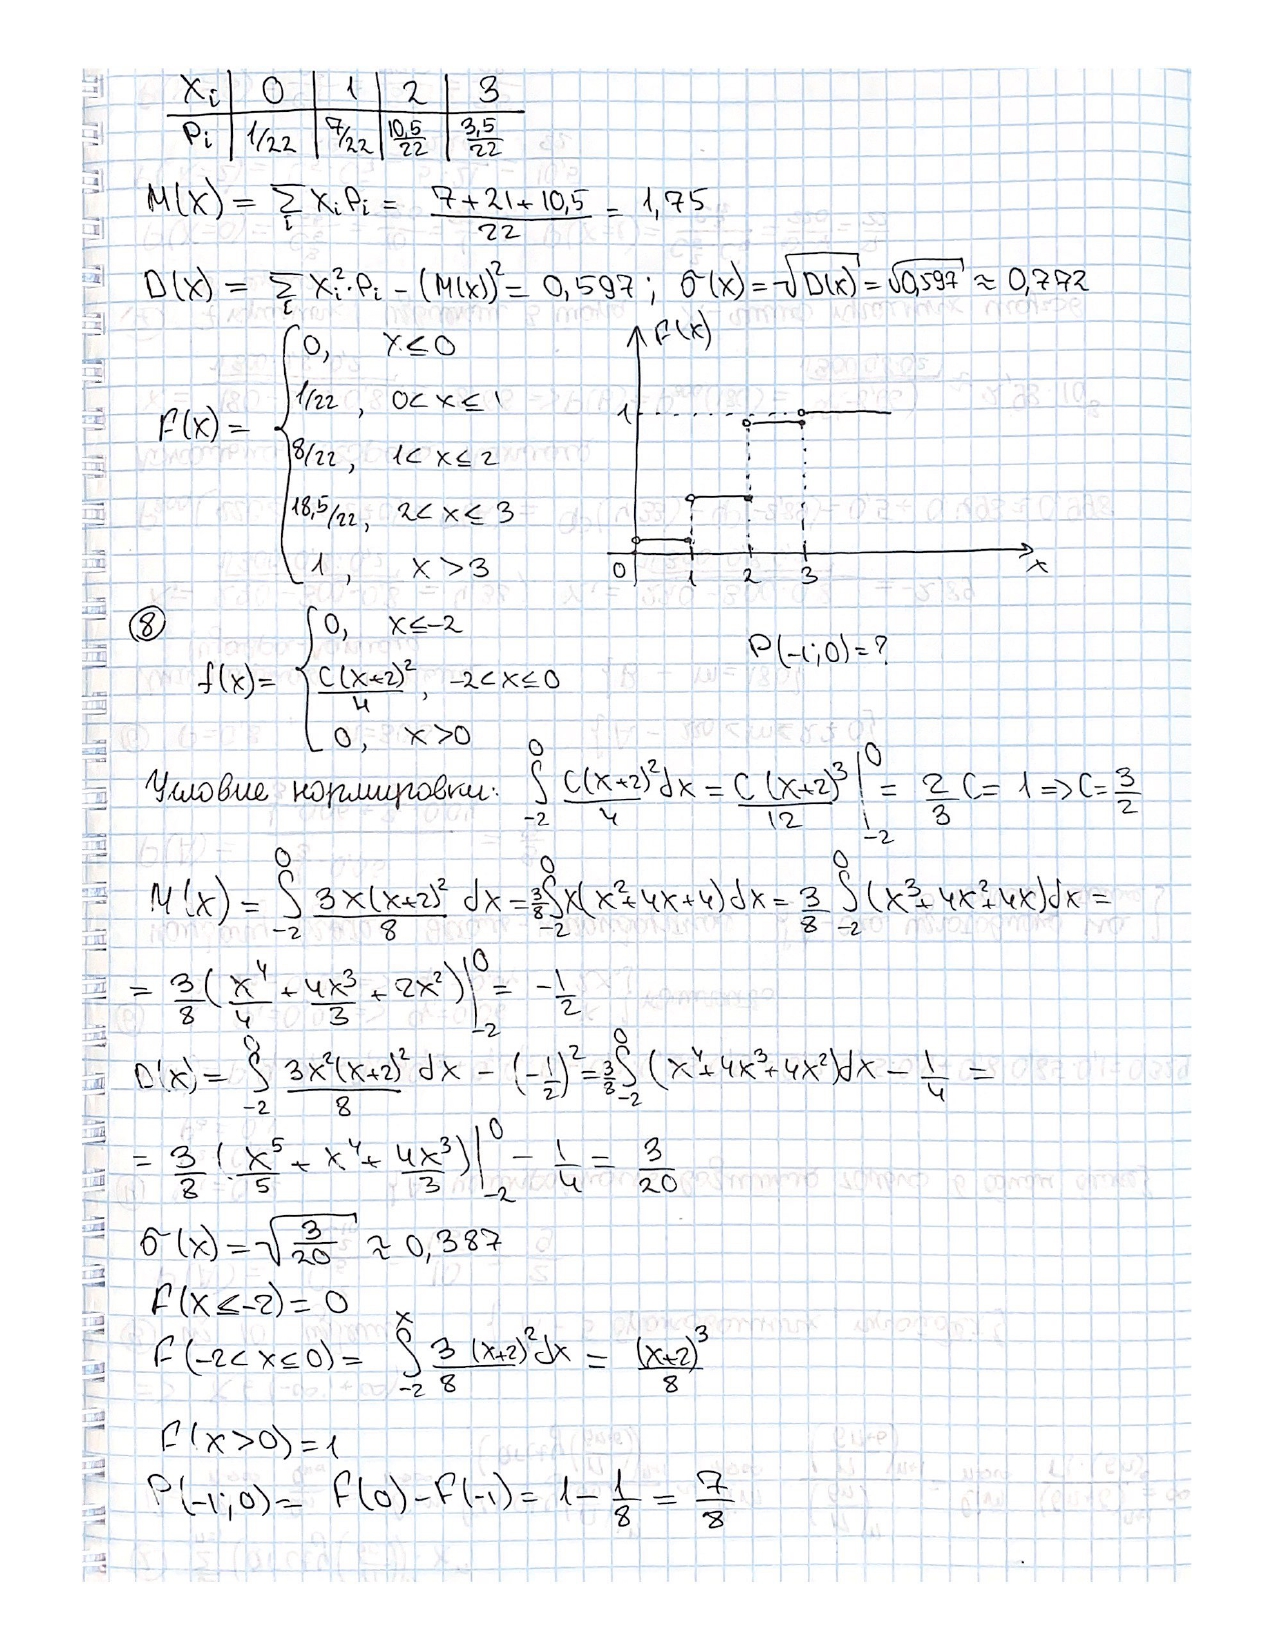 Xi | 0 | 1 | 2 | 3
Pi | 1/22 | 7/22 | 10,5/22 | 3,5/22
M(X) = ∑i Xi Pi = (7+21+10,5)/22 = 1,75
D(X) = ∑i Xi²·Pi − (M(X))² = 0,597; σ(X) = √D(X) = √0,597 ≈ 0,772
F(X) = { 0, X ≤ 0
1/22, 0 < X ≤ 1
8/22, 1 < X ≤ 2
18,5/22, 2 < X ≤ 3
1, X > 3
F(X)
1
0 1 2 3 X
⑧ f(X) = { 0, X ≤ -2
C(X+2)²/4, -2 < X ≤ 0
0, X > 0
P(-1;0) = ?
Условие нормировки: ∫₋₂⁰ C(X+2)²/4 dX = C(X+2)³/12 |₋₂⁰ = 2/3 C = 1 => C = 3/2
M(X) = ∫₋₂⁰ 3X(X+2)²/8 dX = 3/8 ∫₋₂⁰ X(X²+4X+4)dX = 3/8 ∫₋₂⁰ (X³+4X²+4X)dX =
= 3/8 (X⁴/4 + 4X³/3 + 2X²) |₋₂⁰ = -1/2
D(X) = ∫₋₂⁰ 3X²(X+2)²/8 dX − (-1/2)² = 3/8 ∫₋₂⁰ (X⁴+4X³+4X²)dX − 1/4 =
= 3/8 (X⁵/5 + X⁴ + 4X³/3) |₋₂⁰ − 1/4 = 3/20
σ(X) = √(3/20) ≈ 0,387
F(X ≤ -2) = 0
F(-2 < X ≤ 0) = ∫₋₂ˣ 3/8 (X+2)² dX = (X+2)³/8
F(X > 0) = 1
P(-1;0) = F(0) − F(-1) = 1 − 1/8 = 7/8